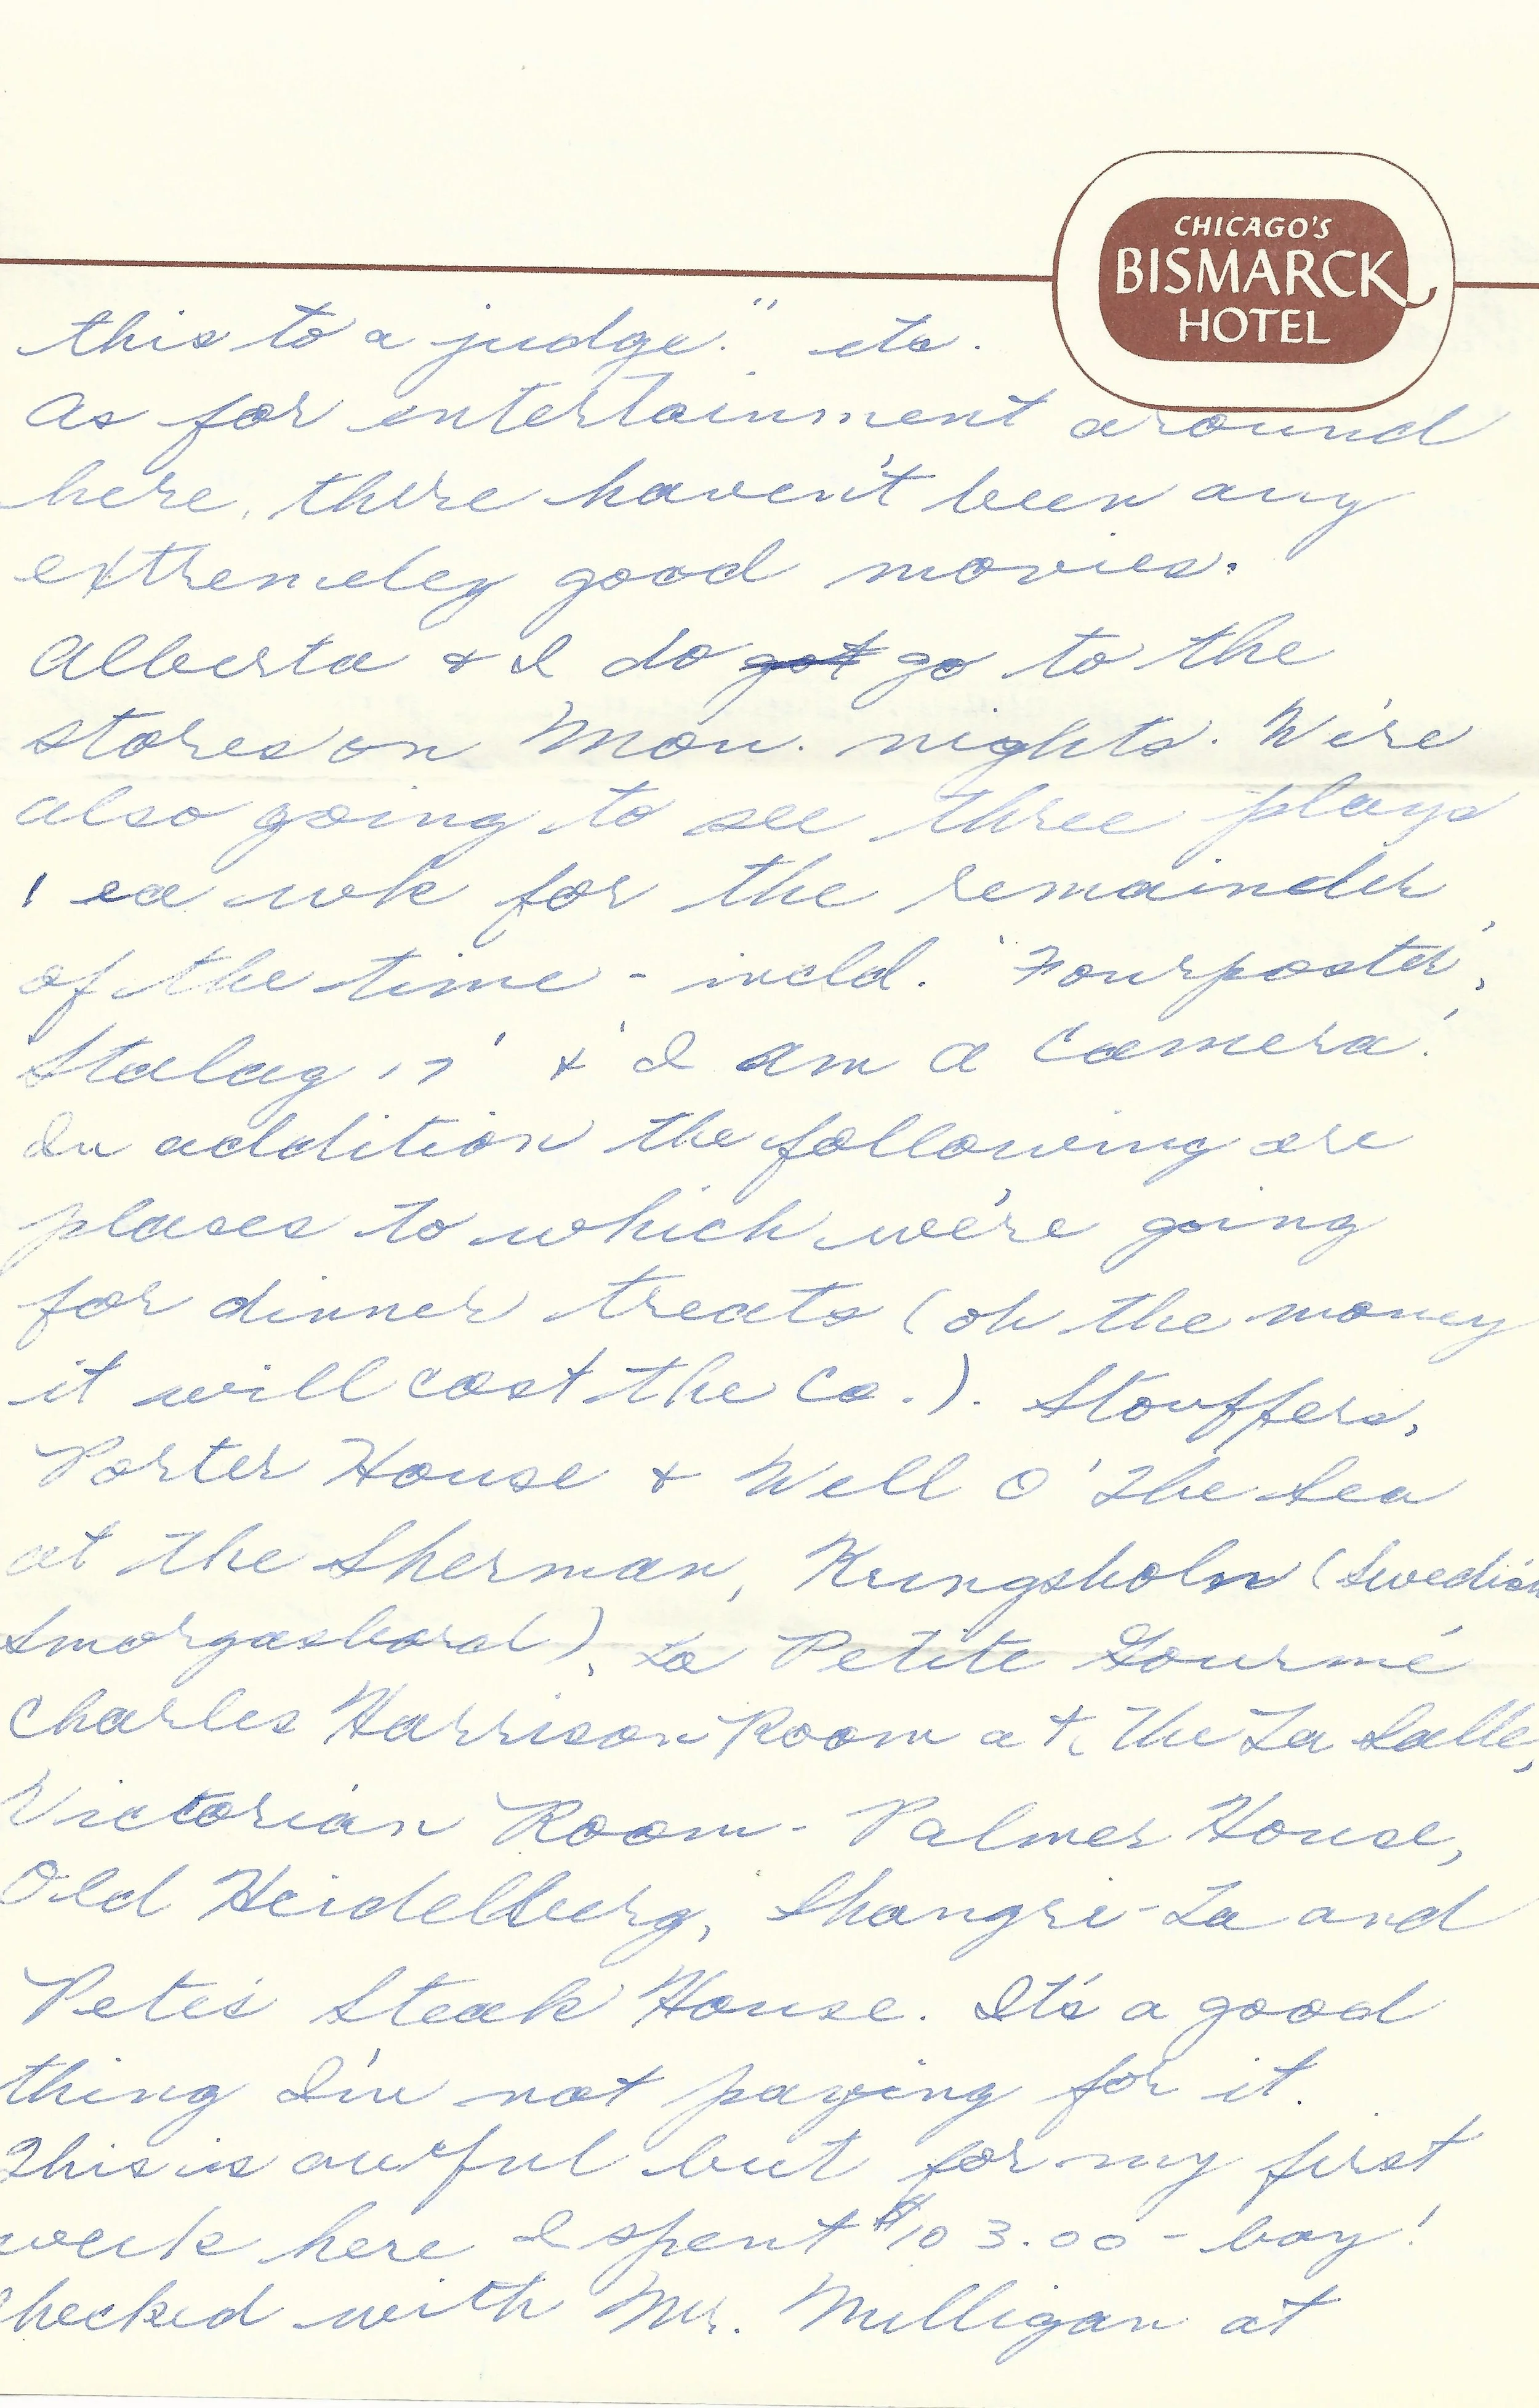 CHICAGO'S
BISMARCK
HOTEL
this to a judge." etc.
As for entertainment around
here, there haven't been any
extremeley good movies.
Alberta & I do got go to the
stores on Mon. nights. We're
also going to see three plays
1 ea wk for the remainder
of the time - incld. 'Fourposter',
'Stalag 17' & 'I am a Camera'.
In addition the following are
places to which we're going
for dinner treats (oh the money
it will cost the Co.). Stouffers,
Porter House & Well O' The Sea
at the Sherman, Kungsholm (Swedish
Smorgasbord), La Petite Gourmé
Charles Harrison Room at the La Salle,
Victorian Room - Palmer House,
Old Heidelburg, Shangri-La and
Pete's Steak House. It's a good
thing I'm not paying for it.
This is awful but for my first
week here I spent $103.00 - boy!
Checked with Mr. Milligan at